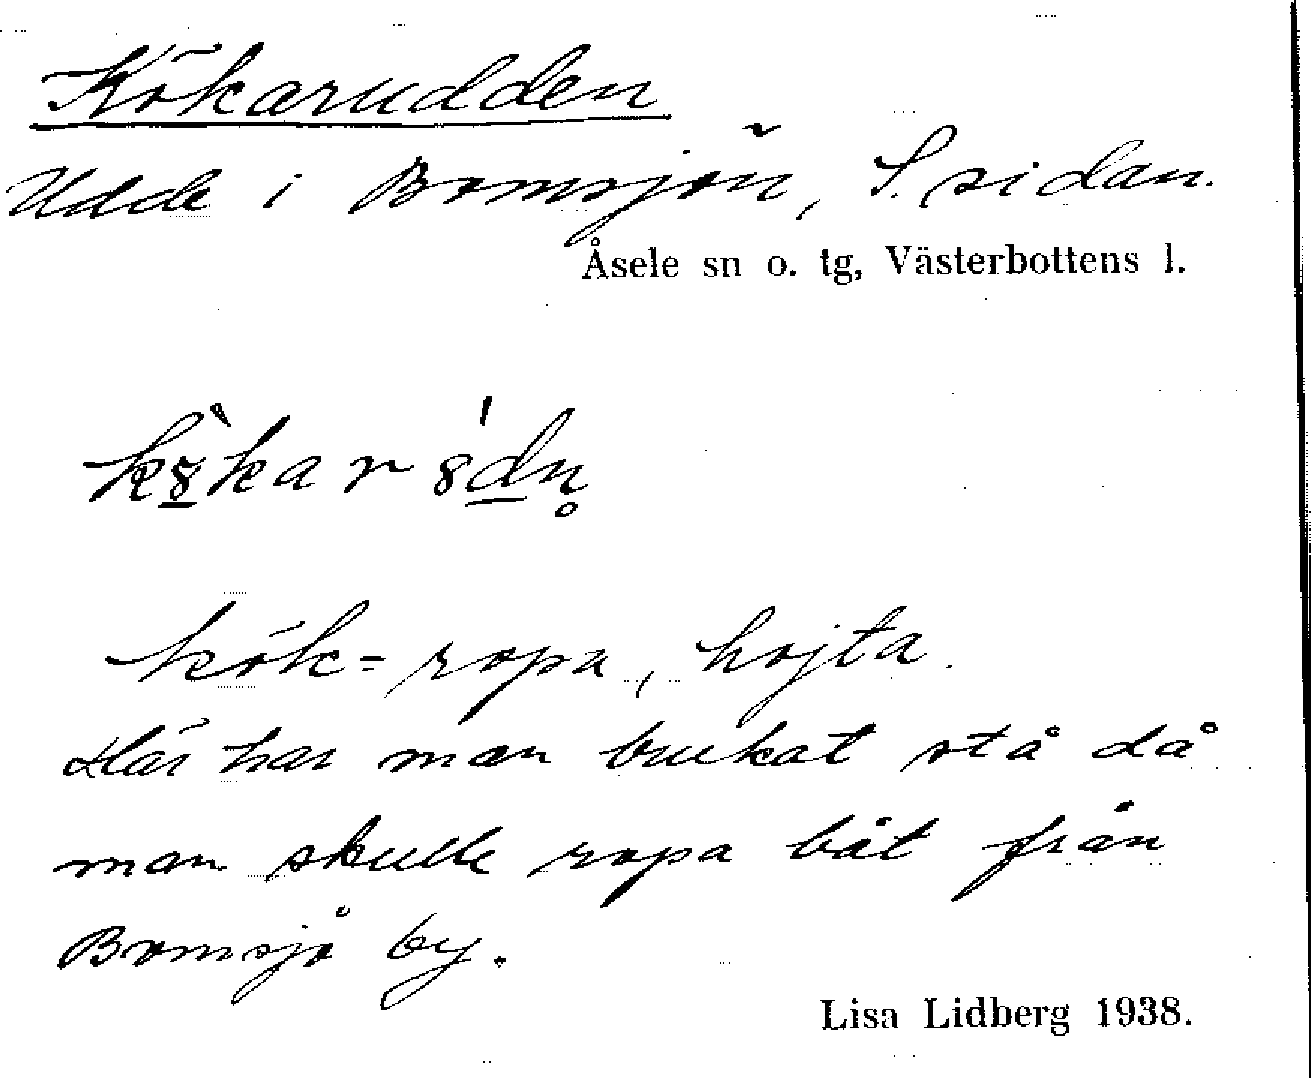 Kökarudden
Udde i Bomsjön, S. sidan.
Åsele sn o. tg, Västerbottens l.
kö̀kar ödn̥
kök = ropa, hojta.
Här har man brukat stå då
man skulle ropa båt från
Bomsjö by.
Lisa Lidberg 1938.